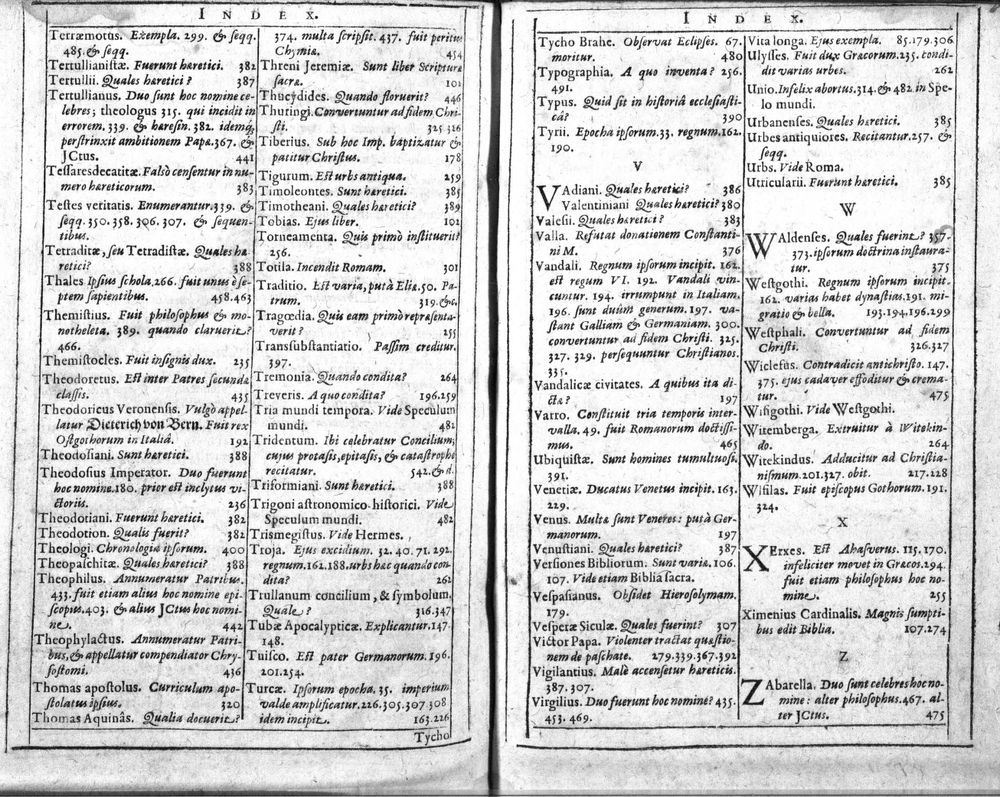 INDEX.
Terræmotus. Exempla. 299. & seqq.
485. & seqq.
Tertullianistæ. Fuerunt hæretici. 382
Tertullii. Quales hæretici? 387
Tertullianus. Duo sunt hoc nomine ce-
lebres; theologus 315. qui incidit in
errorem. 339. & hæresin. 382. idemq́;
perstrinxit ambitionem Papæ. 367. &
JCtus. 441
Tessaresdecatitæ. Falsò censentur in nu-
mero hæreticorum. 383
Testes veritatis. Enumerantur. 339. &
seqq. 350. 358. 306. 307. & sequen-
tibus.
Tetraditæ, seu Tetradistæ. Quales hæ
retici? 388
Thales Ipsius schola, 266. fuit unus è se-
ptem sapientibus. 458.463
Themistius. Fuit philosophus & mo-
notheleta. 389. quando claruerit?
466.
Themistocles. Fuit insignis dux. 235
Theodoretus. Est inter Patres secundæ
classis. 435
Theodoricus Veronensis. Vulgò appel-
latur Dieterich von Bern. Fuit rex
Ostgothorum in Italiâ. 192
Theodosiani. Sunt hæretici. 388
Theodosius Imperator. Duo fuerunt
hoc nomine. 180. prior est inclytus vi-
ctoriis. 236
Theodotiani. Fuerunt hæretici. 382
Theodotion. Qualis fuerit? 382
Theologi. Chronologiæ ipsorum. 400
Theopaschitæ. Quales hæretici? 388
Theophilus. Annumeratur Patribus.
433. fuit etiam alius hoc nomine epi-
scopus. 403. & alius JCtus hoc nomi-
ne. 442
Theophylactus. Annumeratur Patri-
bus, & appellatur compendiator Chry-
sostomi. 436
Thomas apostolus. Curriculum apo-
stolatus ipsius. 320
Thomas Aquinâs. Qualia docuerit?
374. multa scripsit. 437. fuit peritus
Chymiæ. 454
Threni Jeremiæ. Sunt liber Scripturæ
sacræ. 101
Thucydides. Quando floruerit? 446
Thuringi. Convertuntur ad fidem Chri-
sti. 325.326
Tiberius. Sub hoc Imp. baptizatur &
patitur Christus. 178
Tigurum. Est urbs antiqua. 259
Timoleontes. Sunt hæretici. 385
Timotheani. Quales hæretici? 389
Tobias. Ejus liber. 101
Torneamenta. Quis primò instituerit?
256.
Totila. Incendit Romam. 301
Traditio. Est varia, putà Eliæ. 50. Pa-
trum. 319. &c.
Tragœdia. Quis eam primò repræsenta-
verit? 255
Transsubstantiatio. Passim creditur.
397.
Tremonia. Quando condita? 264
Treveris. A quo condita? 196.259
Tria mundi tempora. Vide Speculum
mundi. 482
Tridentum. Ibi celebratur Concilium,
cujus protasis, epitasis, & catastrophe
recitatur. 542. & d.
Triformiani. Sunt hæretici. 388
Trigoni astronomico-historici. Vide
Speculum mundi. 482
Trismegistus. Vide Hermes.
Troja. Ejus excidium. 32. 40. 71. 292.
regnum. 162. 188. urbs hæc quando con-
dita? 262
Trullanum concilium, & symbolum.
Quale? 316.347
Tubæ Apocalypticæ. Explicantur. 147.
148.
Tuisco. Est pater Germanorum. 196.
201. 254.
Turcæ. Ipsorum epocha. 35. imperium
valde amplificatur. 226. 305. 307. 308
idem incipit. 163.226
Tycho
INDEX.
Tycho Brahe. Observat Eclipses. 67.
moritur. 480
Typographia. A quo inventa? 256.
491.
Typus. Quid sit in historiâ ecclesiasti-
câ? 390
Tyrii. Epocha ipsorum. 33. regnum. 162.
190.
V
VAdiani. Quales hæretici? 386
Valentiniani Quales hæretici? 380
Valesii. Quales hæretici? 383
Valla. Refutat donationem Constanti-
ni M. 376
Vandali. Regnum ipsorum incipit. 162.
est regum VI. 192. Vandali vin-
cuntur. 194. irrumpunt in Italiam.
196. sunt duûm generum. 197. va-
stant Galliam & Germaniam. 300.
convertuntur ad fidem Christi. 325.
327. 329. persequuntur Christianos.
335.
Vandalicæ civitates. A quibus ita di-
ctæ? 197
Varro. Constituit tria temporis inter-
valla. 49. fuit Romanorum doctissi-
mus. 465
Ubiquistæ. Sunt homines tumultuosi.
391.
Venetiæ. Ducatus Venetus incipit. 163.
229.
Venus. Multæ sunt Veneres: putà Ger-
manorum. 197
Venustiani. Quales hæretici? 387
Versiones Bibliorum. Sunt variæ. 106.
107. Vide etiam Biblia sacra.
Vespasianus. Obsidet Hierosolymam.
179.
Vesperæ Siculæ. Quales fuerint? 307
Victor Papa. Violenter tractat quæstio-
nem de paschate. 279.339.367.392
Vigilantius. Malè accensetur hæreticis.
387. 307.
Virgilius. Duo fuerunt hoc nomine? 435.
453. 469.
Vita longa. Ejus exempla. 85.179.306
Ulysses. Fuit dux Græcorum. 235. condi-
dit varias urbes. 262
Unio. Infelix abortus. 314. & 482 in Spe-
lo mundi.
Urbanenses. Quales hæretici. 385
Urbes antiquiores. Recitantur. 257. &
seqq.
Urbs. Vide Roma.
Utricularii. Fuerunt hæretici. 385
W
WAldenses. Quales fuerint? 357-
373. ipsorum doctrina instaura-
tur. 375
Westgothi. Regnum ipsorum incipit.
162. varias habet dynastias. 191. mi-
gratio & bella. 193.194.196.299
Westphali. Convertuntur ad fidem
Christi. 326.327
Wiclefus. Contradicit antichristo. 147.
375. ejus cadaver effoditur & crema-
tur. 475
Wisigothi. Vide Westgothi.
Witemberga. Extruitur à Witekin-
do. 264
Witekindus. Adducitur ad Christia-
nismum. 201. 327. obit. 217.228
Wlfilas. Fuit episcopus Gothorum. 191.
324.
X
XErxes. Est Ahasverus. 115. 170.
infeliciter movet in Græcos. 294.
fuit etiam philosophus hoc no-
mine. 255
Ximenius Cardinalis. Magnis sumpti-
bus edit Biblia. 107.274
Z
ZAbarella. Duo sunt celebres hoc no-
mine: alter philosophus. 467. al-
ter JCtus. 475